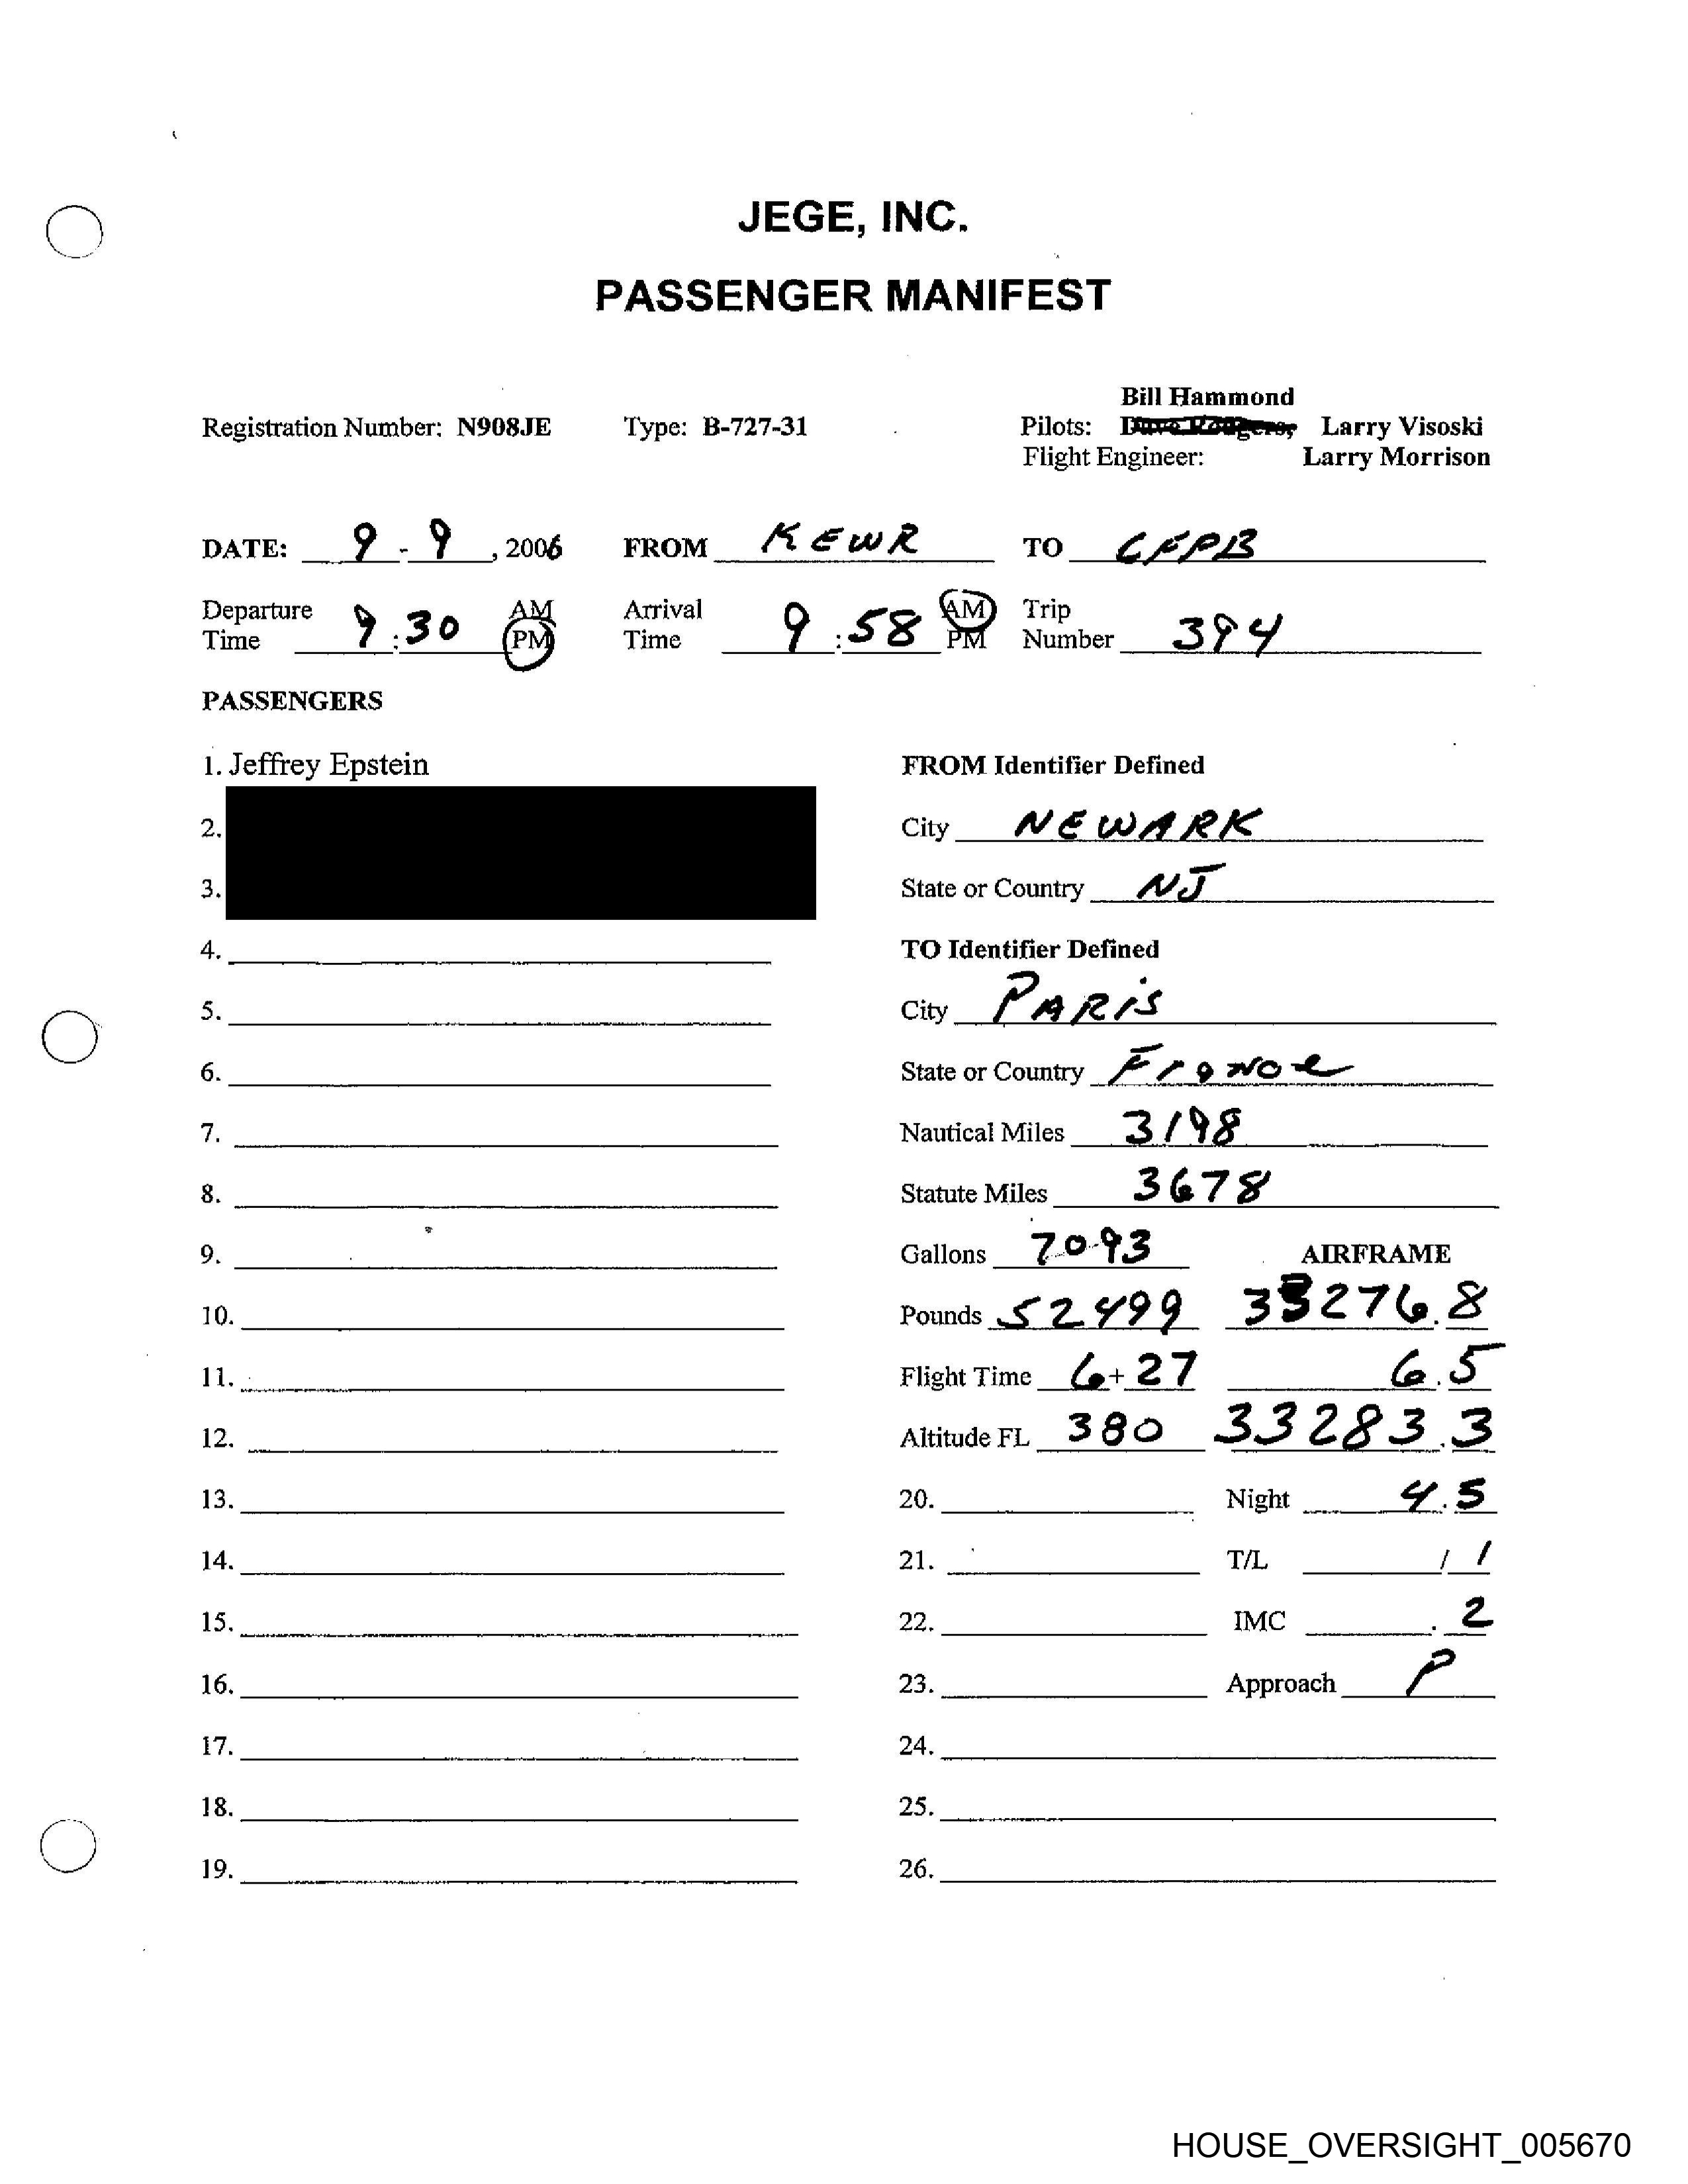 JEGE, INC.
PASSENGER MANIFEST
Bill Hammond
Registration Number: N908JE Type: B-727-31 Pilots: Dave Rodgers, Larry Visoski
Flight Engineer: Larry Morrison
DATE: 9 - 9 , 2006 FROM KEWR TO LFPB
Departure Time 9:30 AM PM Arrival Time 9:58 AM PM Trip Number 394
PASSENGERS
1. Jeffrey Epstein FROM Identifier Defined
2. City NEWARK
3. State or Country NJ
4. TO Identifier Defined
5. City PARIS
6. State or Country France
7. Nautical Miles 3198
8. Statute Miles 3678
9. Gallons 7093 AIRFRAME
10. Pounds 52499 33276.8
11. Flight Time 6+27 6.5
12. Altitude FL 380 33283.3
13. 20. Night 4.5
14. 21. T/L / 1
15. 22. IMC .2
16. 23. Approach P
17. 24.
18. 25.
19. 26.
HOUSE_OVERSIGHT_005670